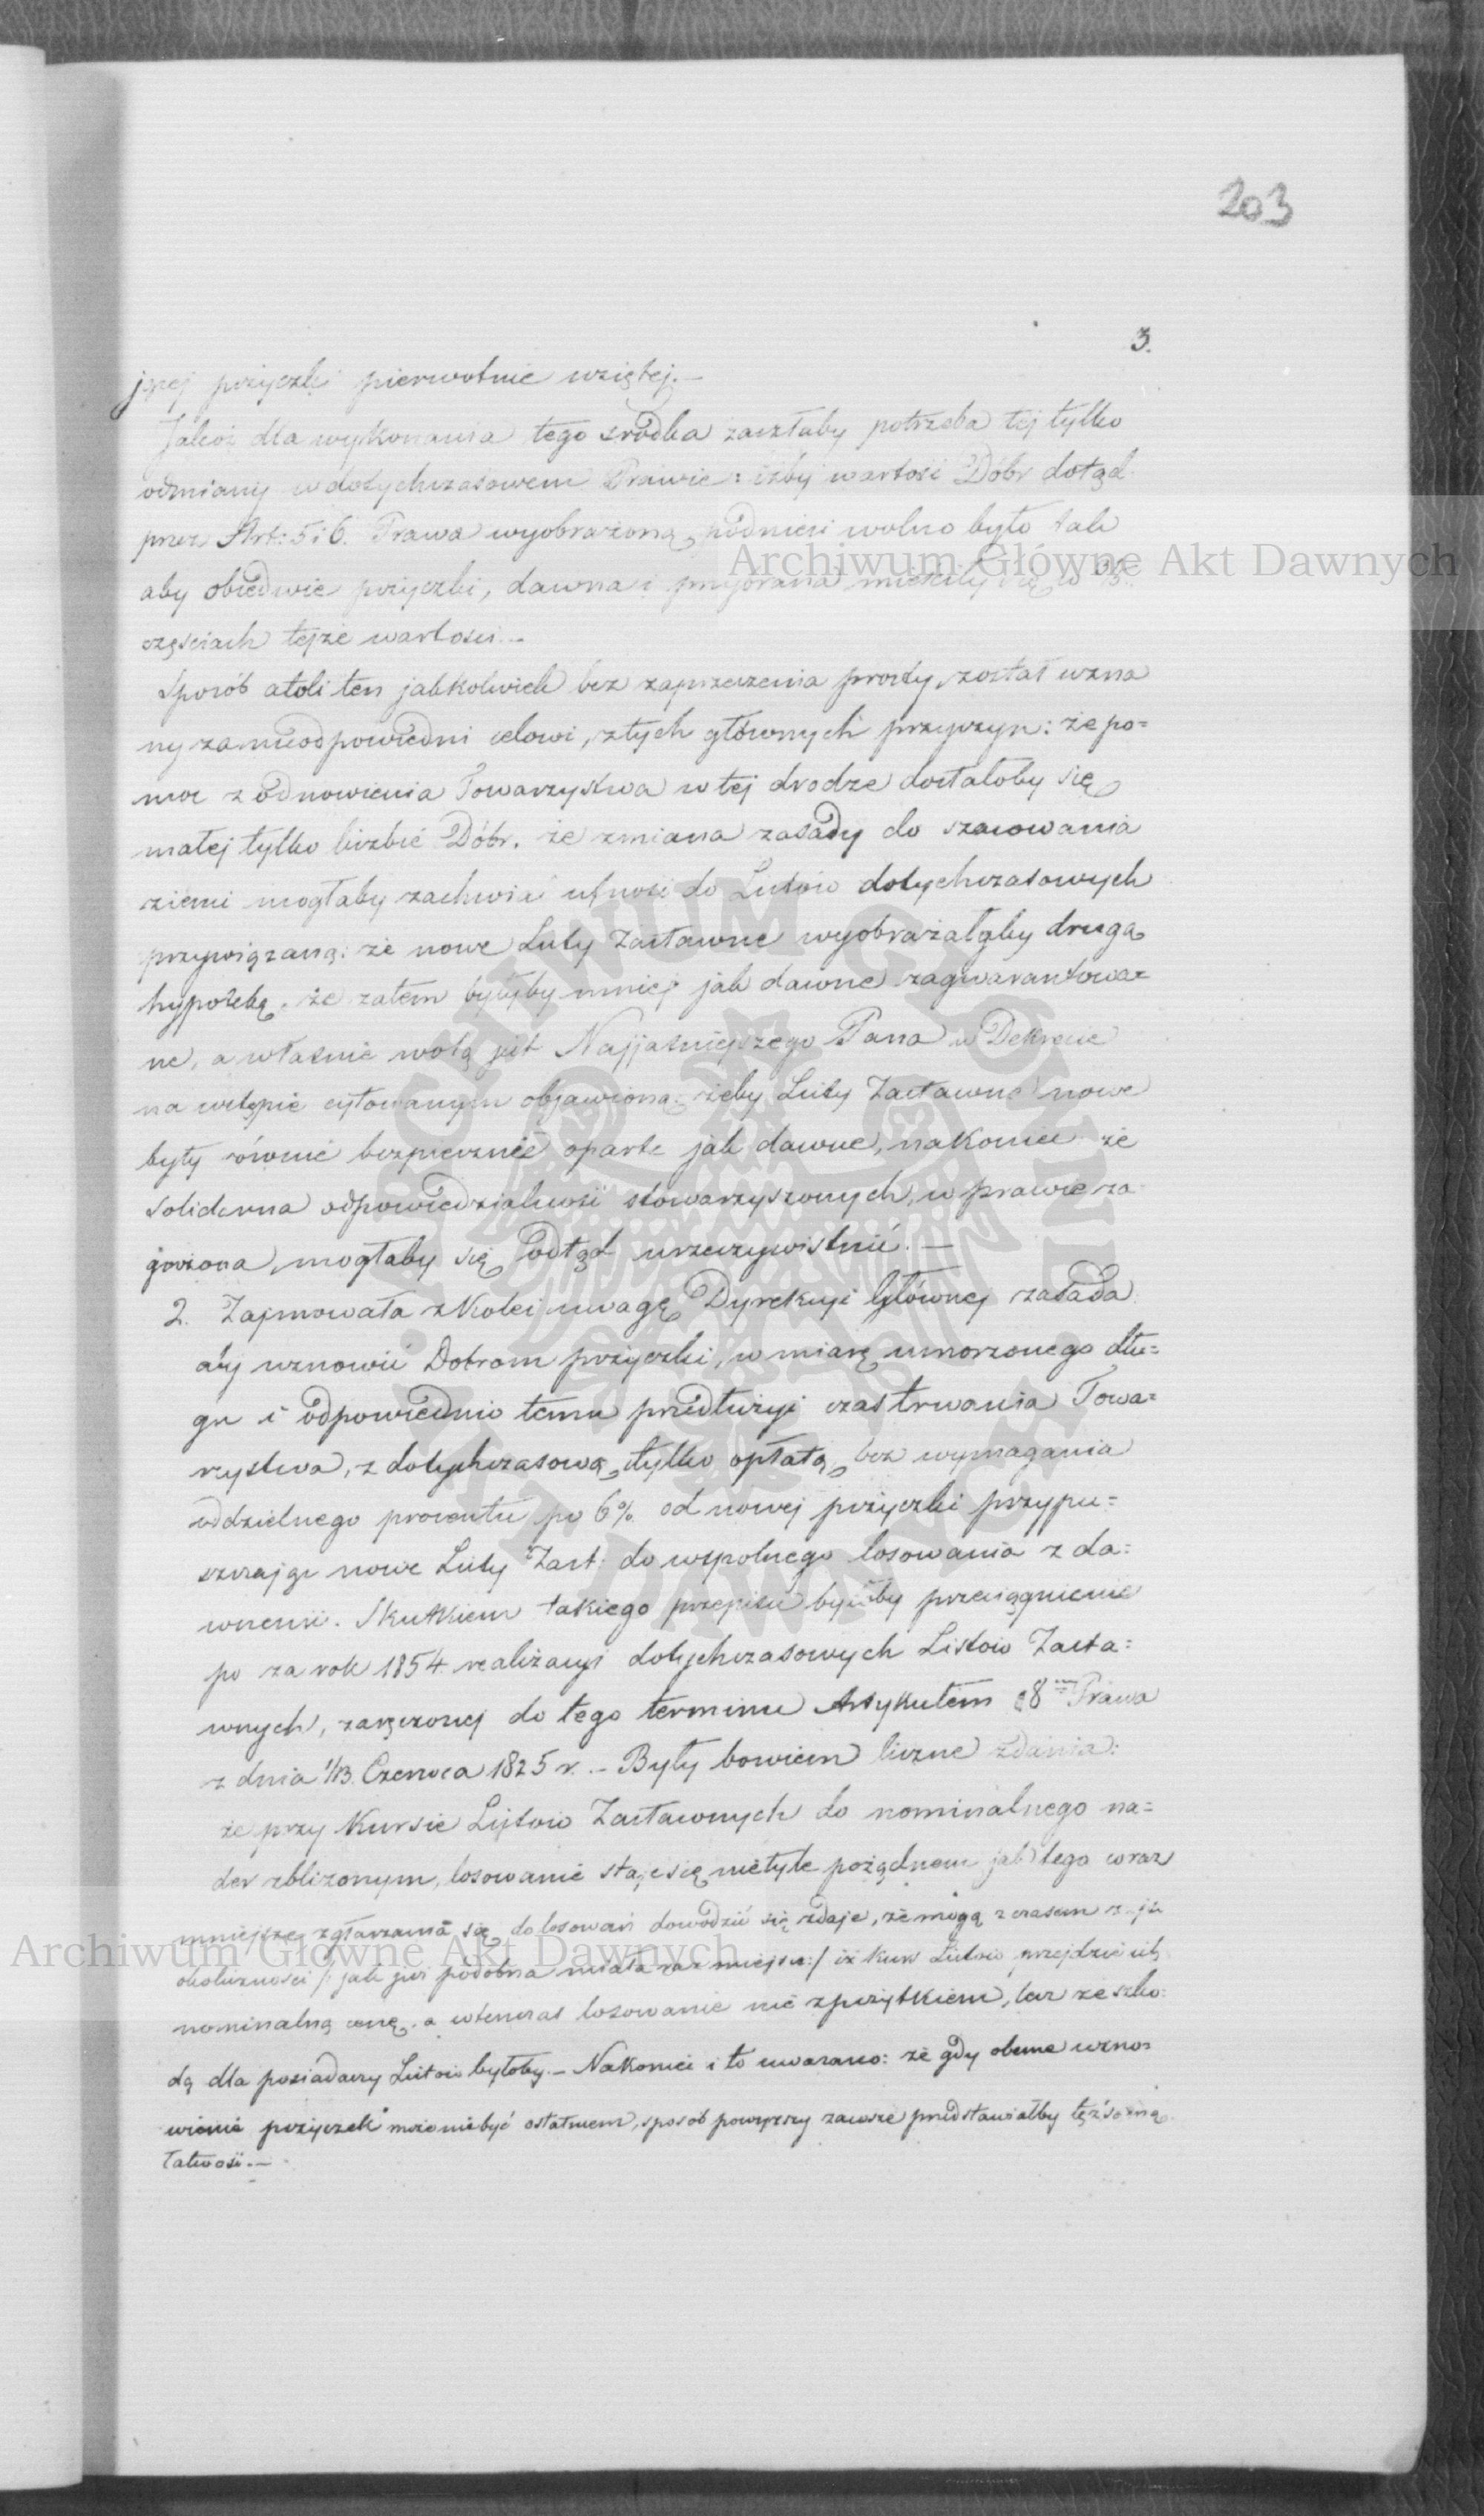 203
3.
jnej pożyczki pierwotnie wziętej.—
Jakoż dla wykonania tego srodka zaszłaby potrzeba tej tylko
odmiany w dotychczasowem Prawie: iżby wartość Dóbr dotąd
przez Art: 5 i 6. Prawa wyobrażoną, podnieść wolno było tak
aby obiedwie pożyczki, dawna i przybrana mieściły się w 3/5.
częściach tejże wartości.—
Sposób atoli ten jakkolwiek bez zaprzeczenia prosty, został uzna
ny za nieodpowiedni celowi, z tych głównych przyczyn: że po=
moc z odnowienia Towarzystwa w tej drodze dostałoby się
małej tylko liczbie Dóbr. że zmiana zasady do szacowania
ziemi mogłaby zachwiać ufność do Listów dotychczasowych
przywiązaną: że nowe Listy Zastawne wyobrażałyby drugą
hypotekę, że zatem byłyby mniej jak dawne zagwarantowa=
ne, a własnie wolą jest Najjaśniejszego Pana w Dekrecie
na wstępie cytowanym objawioną: żeby Listy Zastawne nowe
były równie bezpiecznie oparte jak dawne, nakoniec że
solidarna odpowiedzialność stowarzyszonych, w prawie za
grożona, mogłaby się odtąd urzeczywistnić.—
2. Zajmowała z kolei uwagę Dyrekcyi Głównej zasada
aby wznowić Dobrom pożyczki, w miarę umorzonego dłu=
gu i odpowiednio temu przedłużyć czas trwania Towa=
rzystwa, z dotychczasową tylko opłatą, bez wymagania
oddzielnego procentu po 6% od nowej pożyczki przypu=
szczając nowe Listy Zast: do wspolnego losowania z da=
wnemi. Skutkiem takiego przepisu byłoby przeciągnienie
po za rok 1854. realizacyi dotychczasowych Listów Zasta=
wnych, zaręczonej do tego terminu Artykułem 8 Prawa
z dnia 1/13. Czerwca 1825 r.— Były bowiem liczne zdania:
że przy Kursie Listów Zastawnych do nominalnego na=
der zbliżonym, losowanie staje się nietyle pożądnem jak tego coraz
mniejsze zgłaszania się do losowań dowodzić się zdaje, że mogą z czasem zajść
okoliczności /: jak już podobna miała raz miejsce:/ iż kurs Listów przejdzie ich
nominalną cenę, a wtenczas losowanie nie z pożytkiem, lecz ze szko=
dą dla posiadaczy Listów byłoby.— Nakoniec i to uważano: że gdy obecne wzno=
wienie pożyczek może nie być ostatniem, sposób powyższy zawsze przedstawiałby tęż samą
łatwość.—
Archiwum Główne Akt Dawnych
Archiwum Główne Akt Dawnych
ARCHIWUM GŁÓWNE AKT DAWNYCH